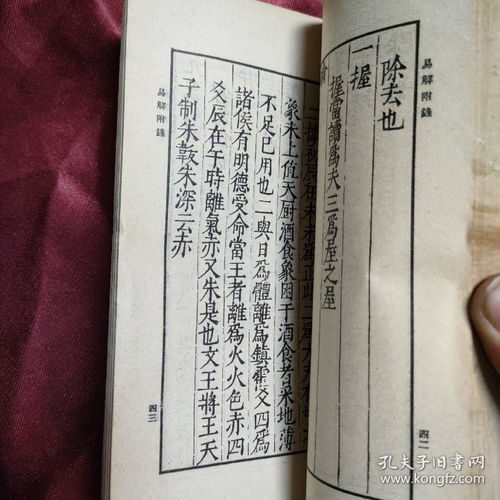 易解附錄
除去也
一握
握當讀爲夫三爲屋之屋
四二
象未上值天厨酒食象困于酒食者采地薄
不足已用也二與日爲體離爲鎮霍爻四爲
諸侯有明德受命當王者離爲火火色赤四
爻辰在午時離氣赤又朱是也文王將王天
子制朱韍朱深云赤
易解附錄
四三
孔夫子旧书网
www.kongfz.com